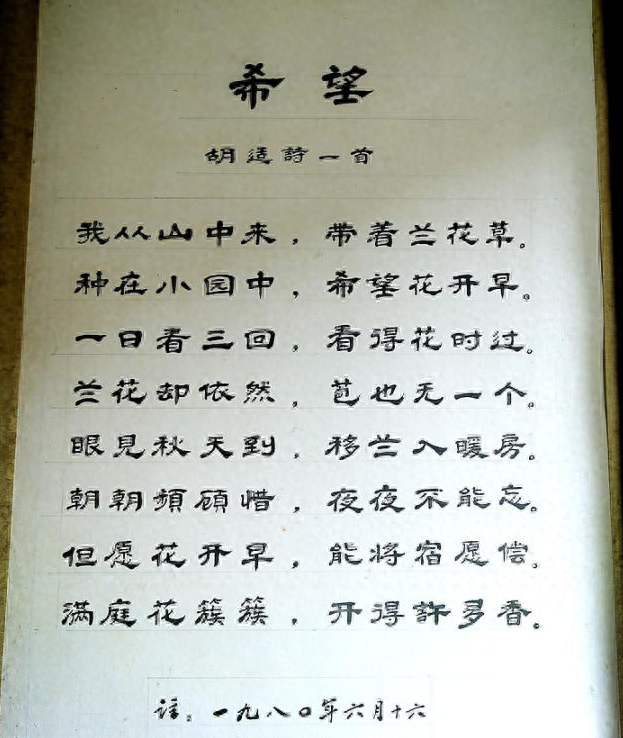 希望
胡适詩一首
我从山中来，带着兰花草。
种在小园中，希望花开早。
一日看三回，看得花时过。
兰花却依然，苞也无一个。
眼見秋天到，移兰入暖房。
朝朝頻顾惜，夜夜不能忘。
但愿花开早，能将宿愿偿。
满庭花簇簇，开得許多香。
註：一九八〇年六月十六